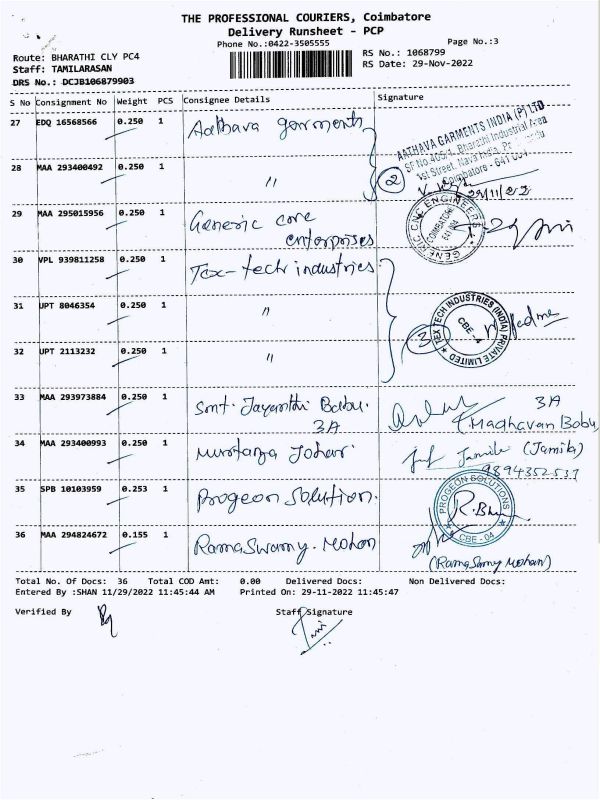 THE PROFESSIONAL COURIERS, Coimbatore
Delivery Runsheet - PCP
Phone No.:0422-3505555
Page No.:3
Route: BHARATHI CLY PC4
RS No.: 1068799
Staff: TAMILARASAN
RS Date: 29-Nov-2022
DRS No.: DCJB106879903
S No Consignment No Weight PCS Consignee Details Signature
27 EDQ 16568566 0.250 1 Aathava garments
AATHAVA GARMENTS INDIA (P) LTD
SF No.406/1, Bharathi Industrial Area
1st Street, Nava India,
Coimbatore - 641 004
28 MAA 293400492 0.250 1 〃 2
29/11/22
29 MAA 295015956 0.250 1 Generic core
enterprises
GENERIC CNC ENGINEERS
COIMBATORE
30 VPL 939811258 0.250 1 Tex-tech industries
31 UPT 8046354 0.250 1 〃
TEX TECH INDUSTRIES (INDIA) PRIVATE LIMITED
CBE - 4
3
32 UPT 2113232 0.250 1 〃
33 MAA 293973884 0.250 1 Smt. Jayanthi Babu. 3A
3A T.Madhavan Babu
34 MAA 293400993 0.250 1 Johar.
Jamila (Jamila)
9894352537
35 SPB 10103959 0.253 1 Progeon Solution.
PROGEON SOLUTIONS
CBE - 04
36 MAA 294824672 0.155 1 RamaSwamy. Mohan
(RamaSamy Mohan)
Total No. Of Docs: 36 Total COD Amt: 0.00 Delivered Docs: Non Delivered Docs:
Entered By :SHAN 11/29/2022 11:45:44 AM Printed On: 29-11-2022 11:45:47
Verified By Staff Signature